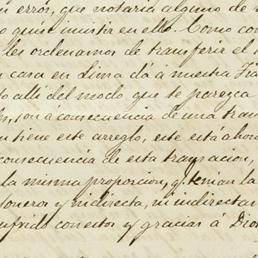 error, que notaria alguno de
quise insistir en ello. Como con
les ordenamos de transferir el
casa en Lima dá á nuestra
to allí del modo que te parezca
son a consecuencia de una tran
tiene este arreglo, este está ahor
consecuencia de esta transacion,
la misma proporcion, q. tenian la
y indirecta, ni indirectar
sufrido conestos y gracias á Dios